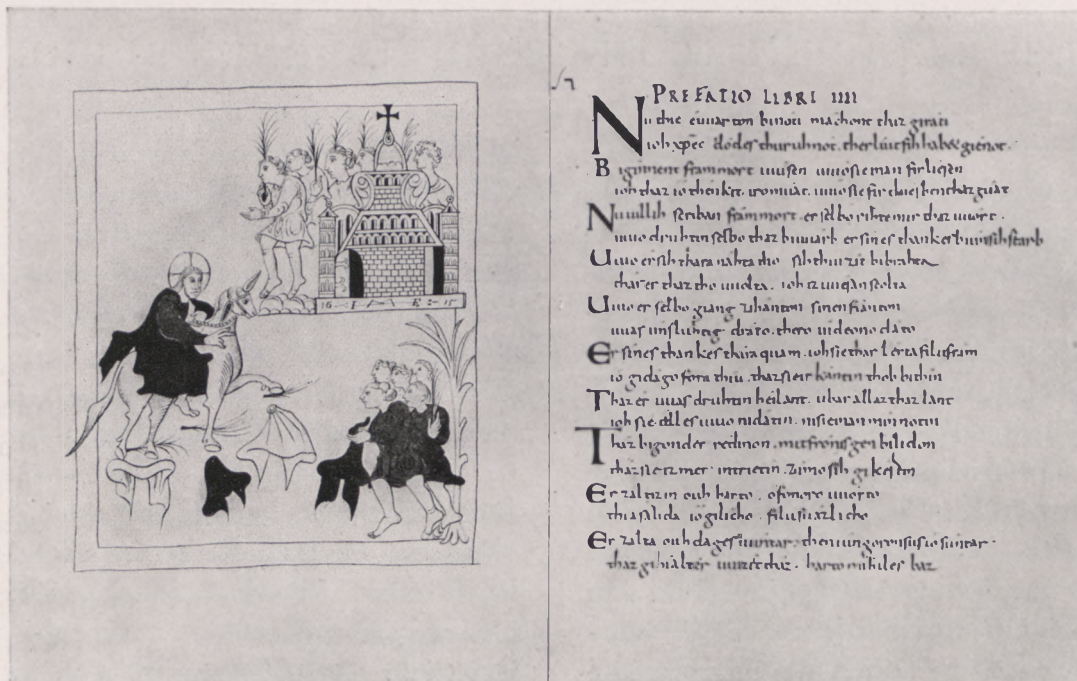 PREFATIO LIBRI IIII
Nu thie euuarton binoti machont thaz girati
ioh xpes dodes thuruhnot. ther liut sih habet gieinot.
Biginnent frammort uuisen uuio sie nan firliesen
ioh thaz io thenkent uuio sie firthuesben thaz guat
Nu uuillih scriban frammort. er selbo rihte mir thaz uuort.
uuio druhtin selbo thaz biuuarb er sines thankes bi unsih starb
Uuio er sih thara nahta tho sih thiu zit bibrahta
thaz er thaz tho uuolta. ioh iz uuesan scolta
Uuio er selbo giang zihanton sinen fianton
uuas drato. thero dato
Er sines thankes thara quam. ioh sie thar lerta filu fram
io gidago fora thiu. thaz sie ir kantin thoh bithiu
Thaz er uuas druhtin heilant. ubar allaz thaz lant
ioh sie alles uuio ni datin.
Thaz bigonder redinon. mit fronisgen bilidon
thaz sie iz mer intrietin. zimo sih gikertin
Er zalt iz in ouh harto. offonoro uuorto
thia salida io gilicho. filu suazlicho
Er zalta ouh dages uuntar. then iungoron suntar.
thaz uuret thaz. harto mihiles baz